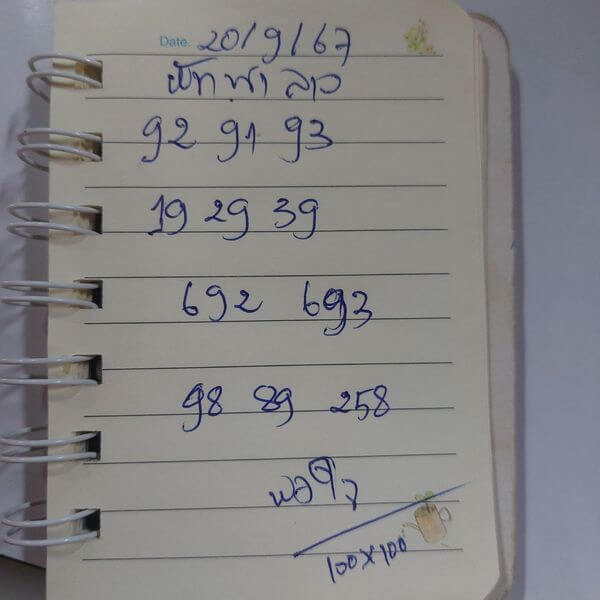 Date. 20/9/67
พัทยา ลาว
92 91 93
19 29 39
692 693
98 89 258
พอใจ
100x100